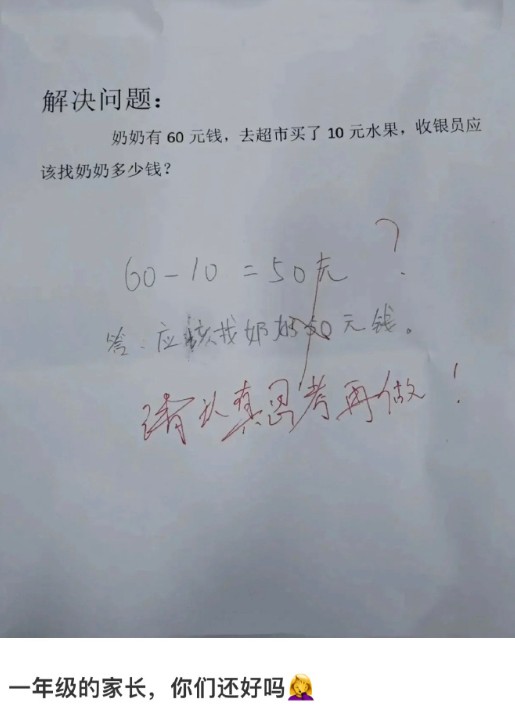 解决问题：
奶奶有 60 元钱，去超市买了 10 元水果，收银员应
该找奶奶多少钱？
?
60-10=50元
答、应该找奶奶50元钱。
请认真思考再做！
一年级的家长，你们还好吗🤦‍♀️